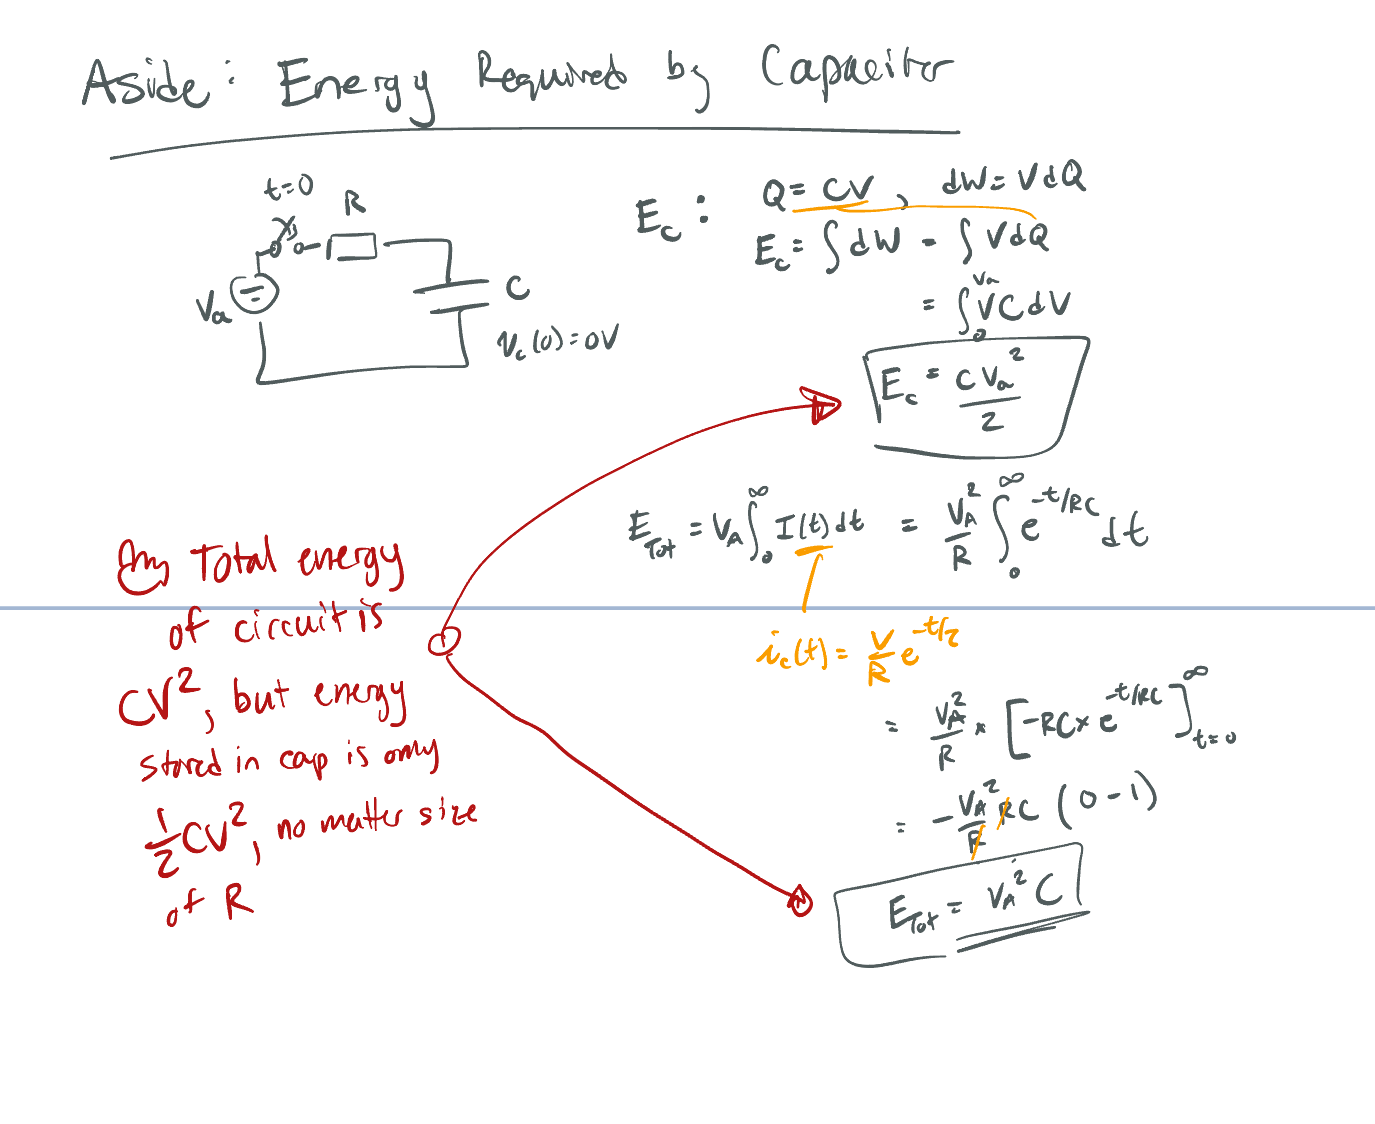 Aside: Energy Required by Capacitor
t=0
R
Va
C
Vc(0)=0V
Ec: Q=CV, dW=VdQ
Ec=∫dW = ∫VdQ
= ∫₀^Va VCdV
Ec = CVa²/2
E_Tot = V_A ∫₀^∞ I(t)dt = V_A²/R ∫₀^∞ e^(-t/RC) dt
ic(t) = V/R e^(-t/τ)
= V_A²/R × [-RC× e^(-t/RC)]^∞_t=0
= -V_A²/R RC (0-1)
E_Tot = V_A² C
Total energy
of circuit is
CV², but energy
stored in cap is only
½CV², no matter size
of R